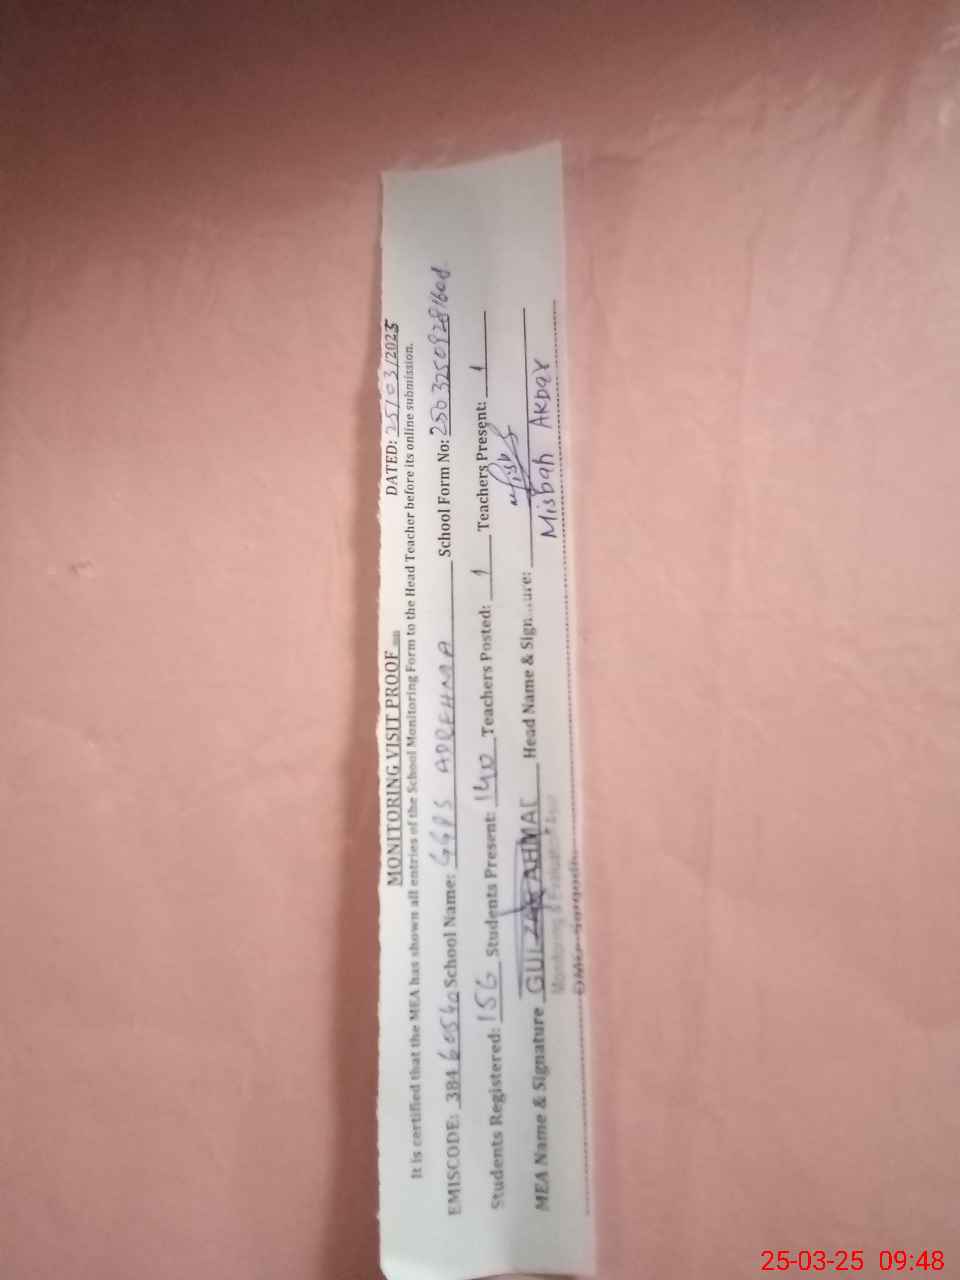 MONITORING VISIT PROOF DATED: 25/03/2025
It is certified that the MEA has shown all entries of the School Monitoring Form to the Head Teacher before its online submission.
EMISCODE: 38460540 School Name: GGPS ADREHMA School Form No:
Students Registered: 156 Students Present: 140 Teachers Posted: 1 Teachers Present: 1
MEA Name & Signature AHMAD Head Name & Signature: Misbah Akbar
Monitoring & Evaluation
DMEA Sargodha
25-03-25 09:48